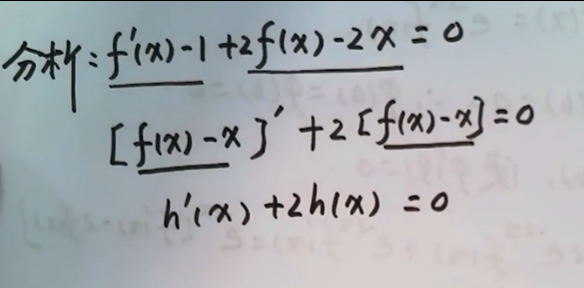 分析：f'(x)-1+2f(x)-2x=0
[f(x)-x]'+2[f(x)-x]=0
h'(x)+2h(x)=0